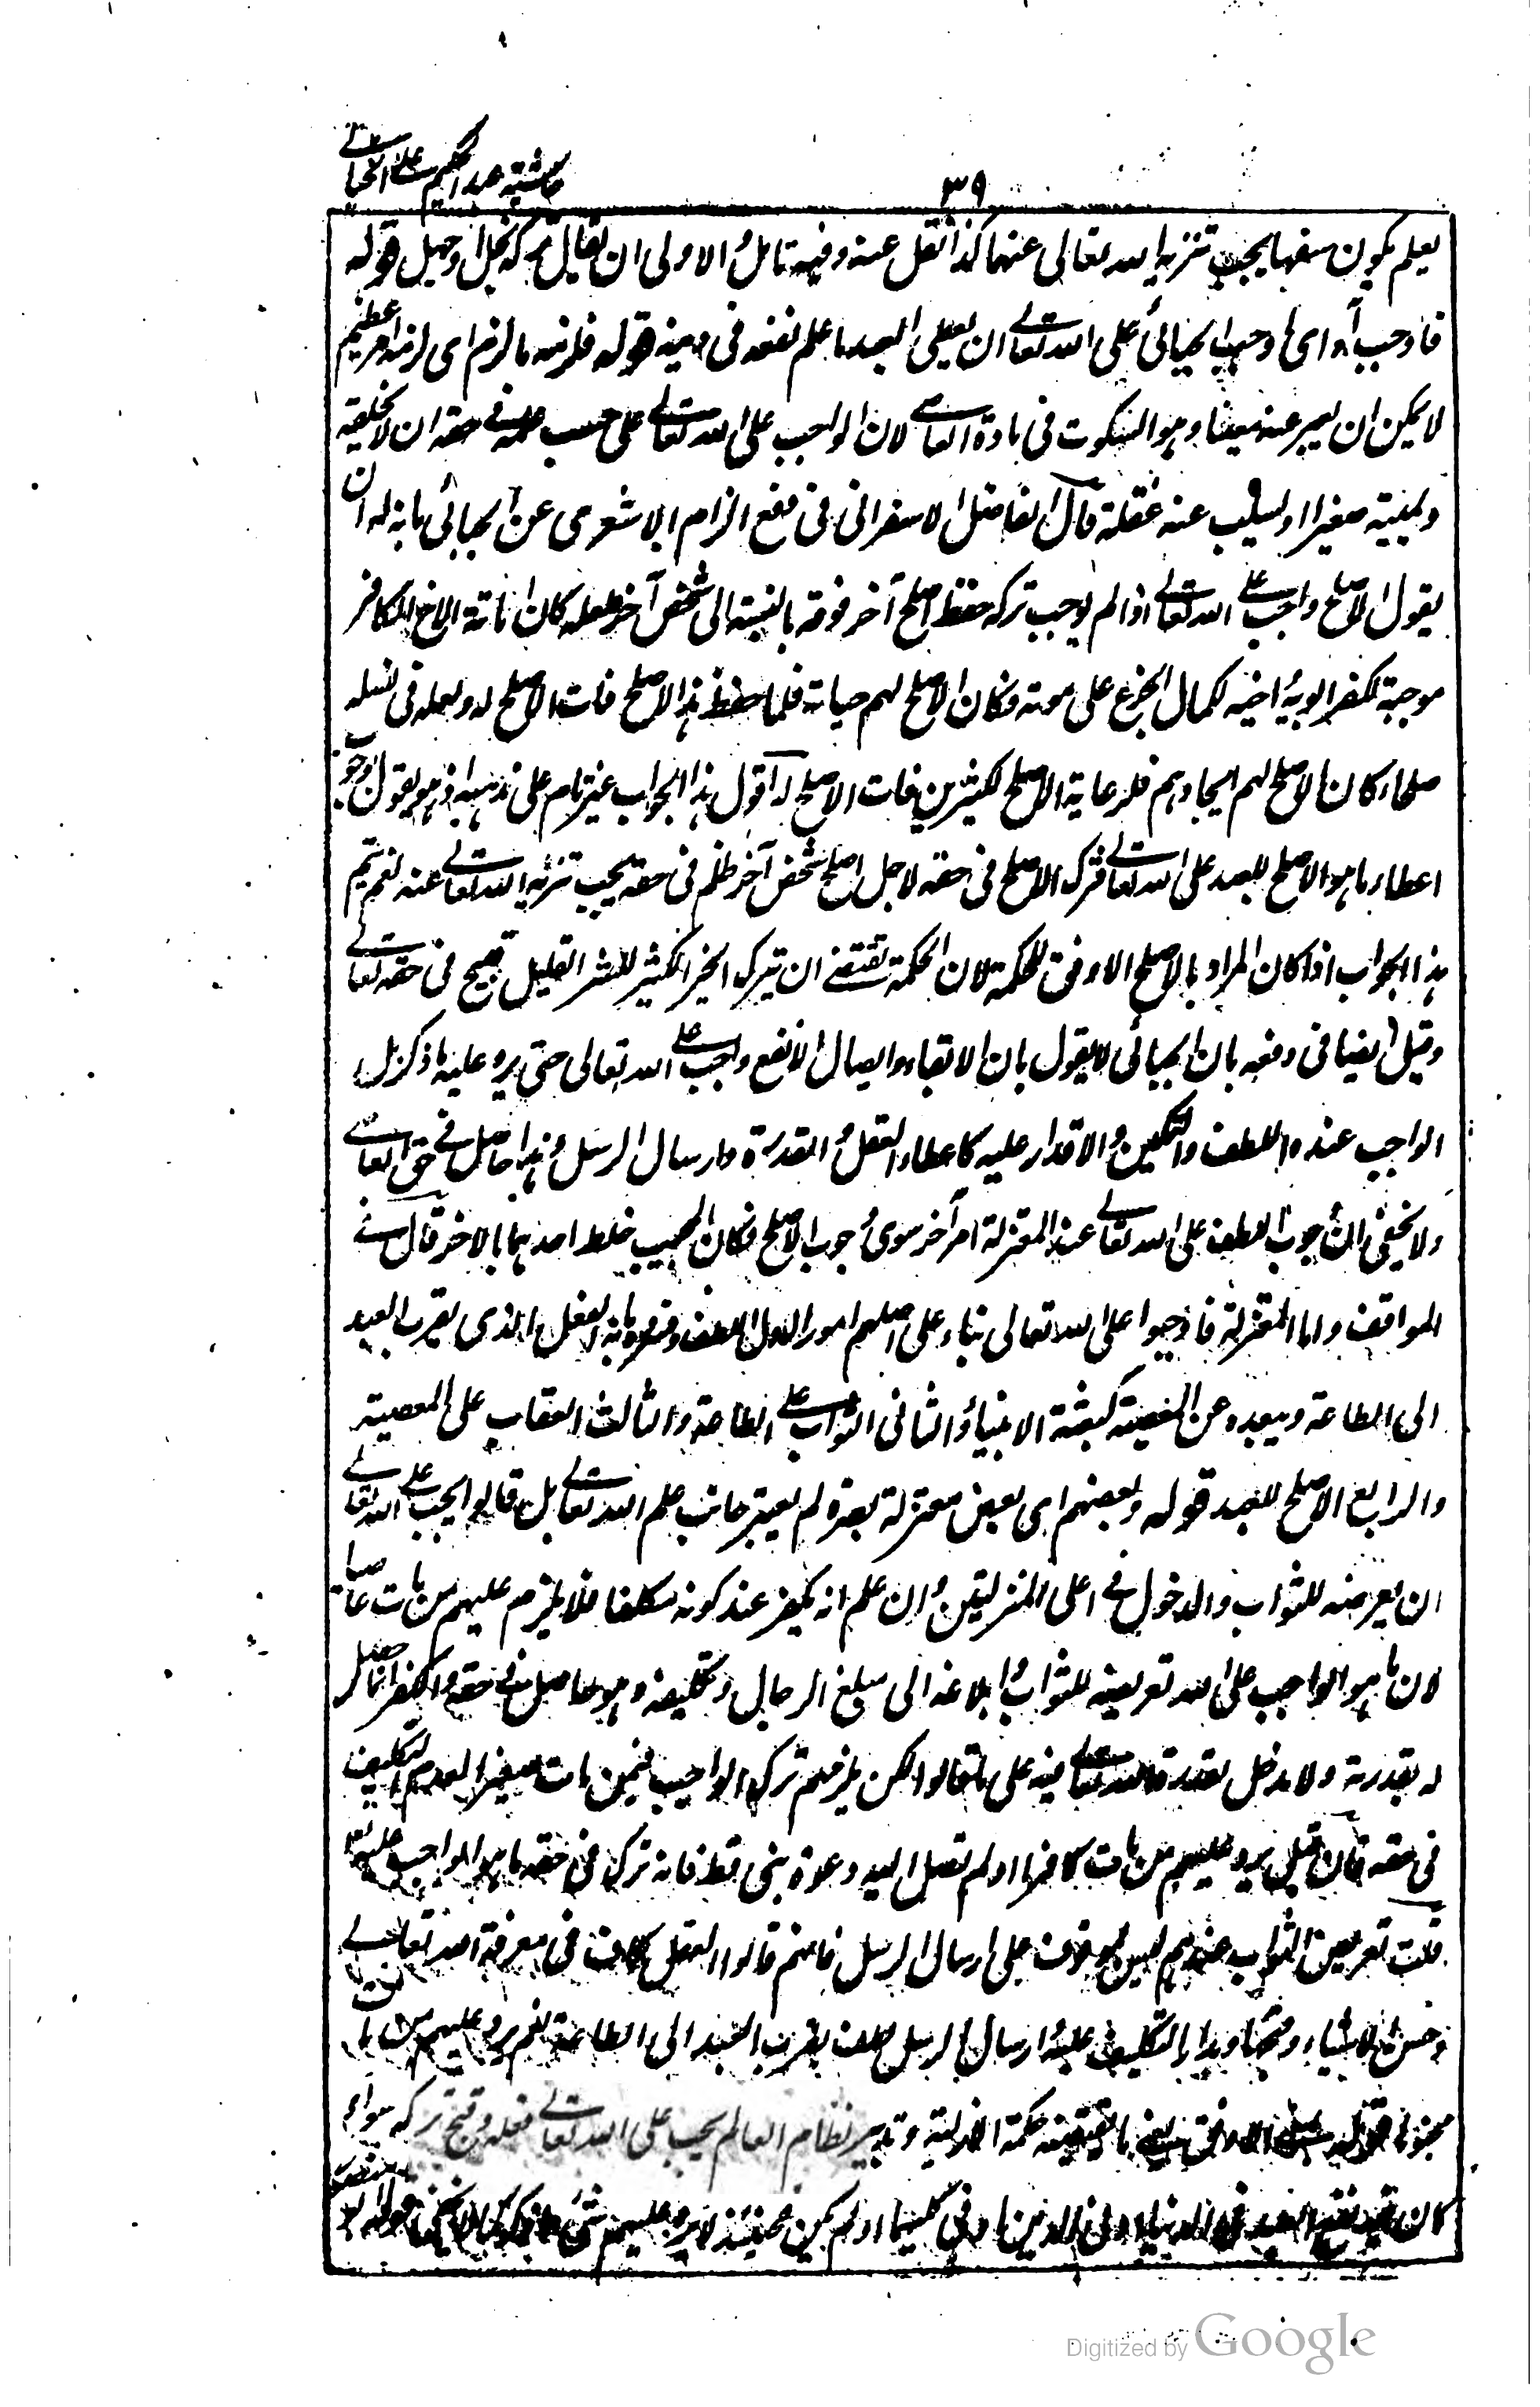 حاشية عبد الحكيم على الخيالى
٣٩
يعلم يكون سفها يجب تنزيه الله تعالى عنهما كذا نقل عنه وفيه تامل والاولى ان يقال تركه بخل او جهل قوله
فاوجب آه اى اوجب الجبائى على الله تعالى ان يعطى العبد ما علم نفعه فى دينه قوله فلزمه ما لزم اى لزمه امر عظيم
لا يمكن ان يعبر عنه معينا وهو السكوت فى مادة العاصى لان الواجب على الله تعالى على حسب علمه فى حقه ان لا يخلقه
او يميته صغيرا او يسلب عنه عقله قال الفاضل الاسفرائى فى دفع الزام الاشعرى عن الجبائى بانه له ان
يقول الاصلح واجب على الله تعالى اذا لم يوجب تركه حفظ اصلح آخر فوقه بالنسبة الى شخص آخر فلعله كان اماتة الاخ الكافر
موجبة لكفر ابويه واخيه لكمال الجزع على موته فكان الاصلح لهم حياته فلما حفظ هذا الاصلح فات الاصلح له ولعله فى نسله
صلحاء كان الاصلح لهم ايجادهم فلرعاية الاصلح لكثيرين فات الاصلح له اقول هذا الجواب غير تام على مذهبه اذ هو يقول بوجوب
اعطاء ما هو الاصلح للعبد على الله تعالى فترك الاصلح فى حقه لاجل اصلح شخص آخر ظلم فى حقه يجب تنزيه الله تعالى عنه نعم يتم
هذا الجواب اذا كان المراد بالاصلح الاوفق للحكمة لان الحكمة تقتضى ان ترك الخير الكثير للشر القليل قبيح فى حقه تعالى
وقيل ايضا فى دفعه بان الجبائى لا يقول بان الابقاء وايصال الانفع واجب على الله تعالى حتى يرد عليه ما ذكر بل
الواجب عنده اللطف والتمكين والاقدار عليه كاعطاء العقل والقدرة وارسال الرسل وهذا حاصل فى حق العاصى
ولا يخفى ان وجوب اللطف على الله تعالى عند المعتزلة امر آخر سوى وجوب الاصلح فكان المجيب خلط احدهما بالاخر قال فى
المواقف واما المعتزلة فاوجبوا على الله تعالى بناء على اصلهم امورا الاول اللطف وفسروه بانه الفعل الذى يقرب العبد
الى الطاعة ويبعده عن المعصية كبعثة الانبياء والثانى الثواب على الطاعة والثالث العقاب على المعصية
والرابع الاصلح للعبد قوله وبعضهم اى بعض معتزلة بصرة لم يعتبر جانب علم الله تعالى بل قالوا يجب على الله تعالى
ان يعرضه للثواب والدخول فى اعلى المنزلتين وان علم انه يكفر عند كونه مكلفا فلا يلزم عليهم من مات عاصيا
لان ما هو الواجب على الله تعريضه للثواب وابلاغه الى مبلغ الرجال وتكليفه وهو حاصل فى حقه والكفر انما حصل
له بقدرته ولا مدخل لقدرة الله تعالى فيه على ما قالوا لكن يلزمهم ترك الواجب فيمن مات صغيرا لعدم التكليف
فى حقه فان قيل يرد عليهم من مات كافرا او لم تصل اليه دعوة نبى قط فانه ترك فى حقه ما هو الواجب عليه تعالى
قلت تعريض الثواب عندهم ليس بموقوف على ارسال الرسل فانهم قالوا العقل كاف فى معرفة الله تعالى
وحسن الاشياء وقبحها ومدار التكليف عليه وارسال الرسل لطف يقرب العبد الى الطاعة نعم يرد عليهم من مات
مجنونا قوله الاوفق يعنى ما تقتضيه حكمة الازلية وتدبير نظام العالم يجب على الله تعالى فعله وقبح تركه سواء
كان فيه نفع العبد فى الدنيا او فى الدين او فى كليهما او لم يكن فحينئذ لا يرد عليهم شئ مما ذكر